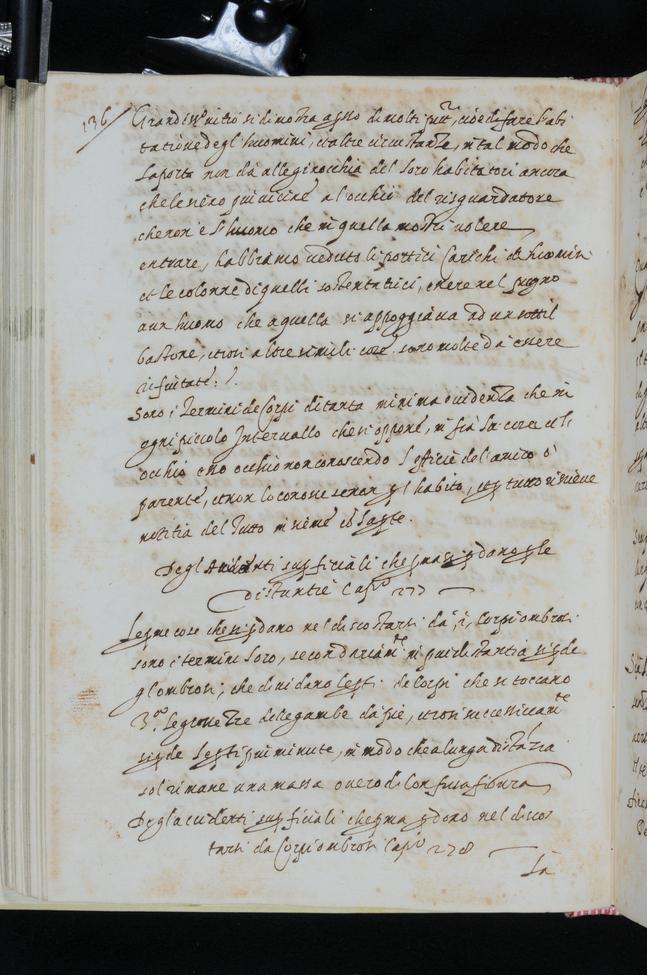 136
Grandiss.o vitio si dimostra apresso di molti pitt.ri, cioè di fare l'abi
tatione degl'huomini, et altre circustanze, in tal modo che
la porta non dà alle ginocchia del loro habitatori ancora
che le sieno piu vicine al occhio del risguardatore
che non è l'huomo che in quella mostri volere
entrare, habbiamo veduto li portici Carichi de huomini
et le colonne di quelli sostentatrici, essere nel pugno
a un huomo che a quella si appoggiava ad un sottil
bastone, et così altre simili cose sono molte da essere
rifiutate:/.
Sono i Termini de Corpi di tanta minima evidenza che in
ogni piccolo Intervallo che si oppone, in fra la cosa et l'
occhio esso occhio non conoscendo l'effigie del amico o
parente, et non lo conosce se non per l'habito, et per tutto riceve
notitia del Tutto insieme con la parte.
Degl'Accidenti superficiali che prima si perdano per le
distantie Cap.o 277
Le prime cose che si perdano nel discostarsi da i Corpi ombrosi
sono i termini loro, secondariam.te in piu distantia si perde
gl'ombrosi, che dividano le parti de Corpi che si toccano
3.o le grossezze delle gambe da pie, et così successivam.te
si perde le parti piu minute, in modo che a lunga distanzia
sol rimane una massa overo di Confusa figura
Degl'accidenti superficiali che prima si perdono nel discos
tarsi da Corpi ombrosi Cap.o 278
La